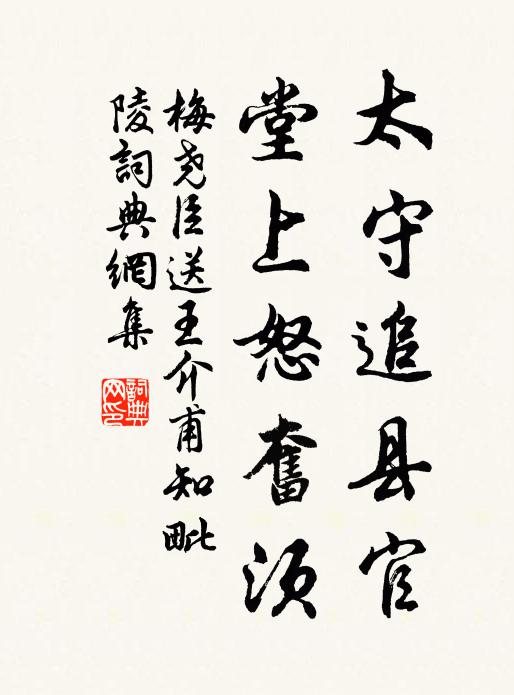 太守追县官
堂上怒奮须
梅尧臣送王介甫知毗
陵詞典網集
詞典网印